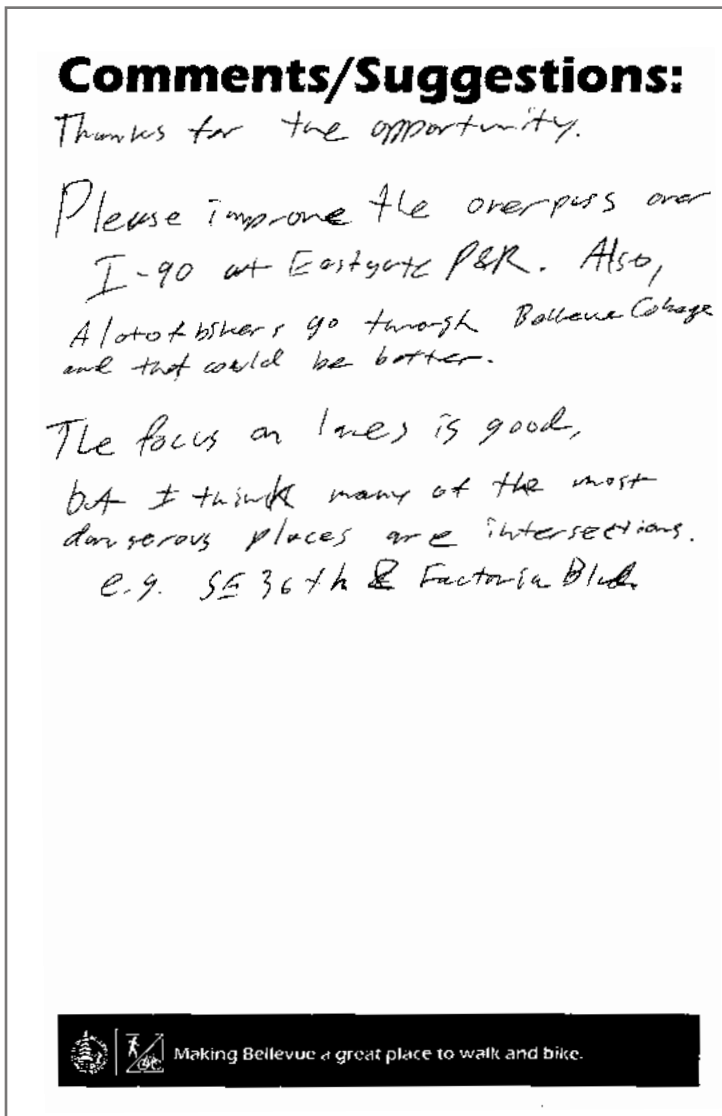 Comments/Suggestions:
Thanks for the opportunity.
Please improve the overpass over
I-90 at Eastgate P&R. Also,
A lot of bikers go through Bellevue College
and that could be better.
The focus on lanes is good,
but I think many of the most
dangerous places are intersections.
e.g. SE 36th & Factoria Blvd.
Making Bellevue a great place to walk and bike.